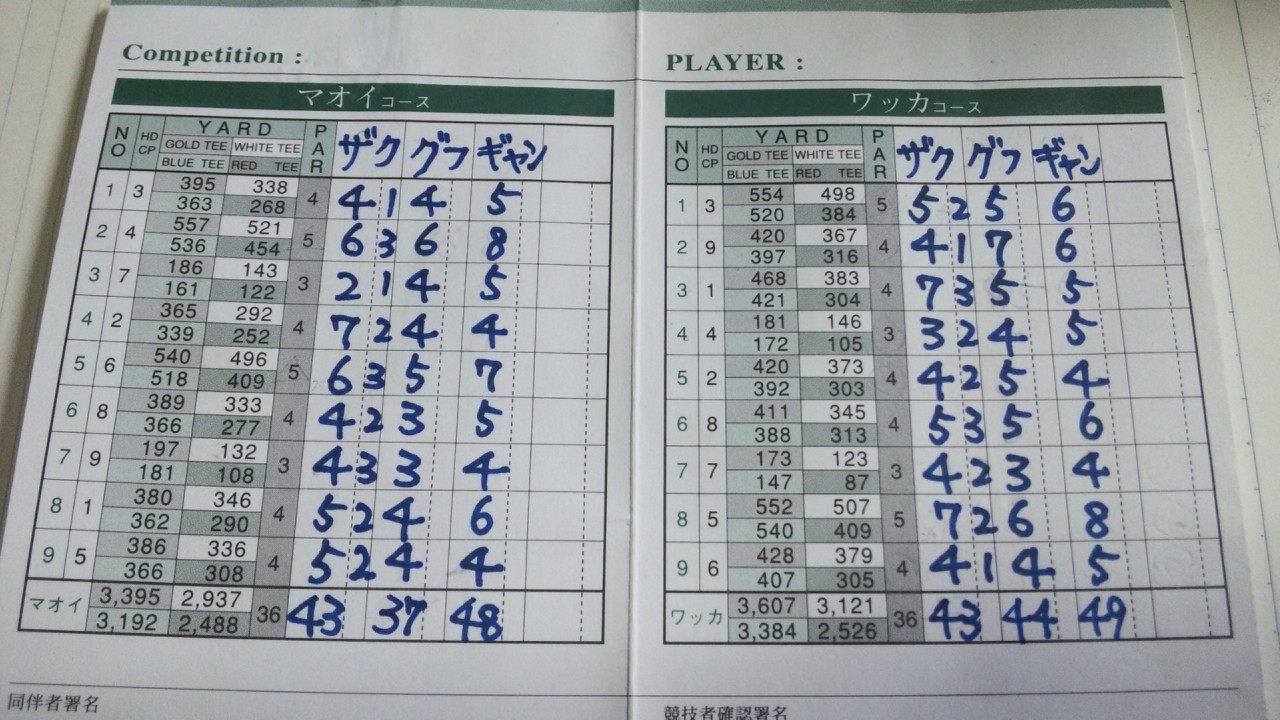 Competition :
マオイコース
NO HDCP YARD PAR ザク グフ ギャン
GOLD TEE WHITE TEE
BLUE TEE RED TEE
1 3 395 338 4 4 1 4 5
363 268
2 4 557 521 5 6 3 6 8
536 454
3 7 186 143 3 2 1 4 5
161 122
4 2 365 292 4 7 2 4 4
339 252
5 6 540 496 5 6 3 5 7
518 409
6 8 389 333 4 4 2 3 5
366 277
7 9 197 132 3 4 3 3 4
181 108
8 1 380 346 4 5 2 4 6
362 290
9 5 386 336 4 5 2 4 4
366 308
マオイ 3,395 2,937 36 43 37 48
3,192 2,488
同伴者署名
PLAYER :
ワッカコース
NO HDCP YARD PAR ザク グフ ギャン
GOLD TEE WHITE TEE
BLUE TEE RED TEE
1 3 554 498 5 5 2 5 6
520 384
2 9 420 367 4 4 1 7 6
397 316
3 1 468 383 4 7 3 5 5
421 304
4 4 181 146 3 3 2 4 5
172 105
5 2 420 373 4 4 2 5 4
392 303
6 8 411 345 4 5 3 5 6
388 313
7 7 173 123 3 4 2 3 4
147 87
8 5 552 507 5 7 2 6 8
540 409
9 6 428 379 4 4 1 4 5
407 305
ワッカ 3,607 3,121 36 43 44 49
3,384 2,526
競技者確認署名